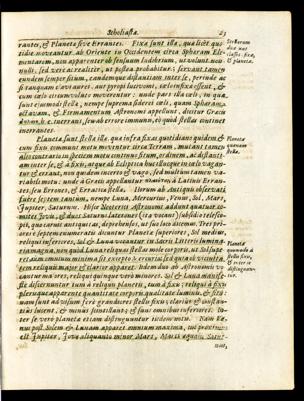 Scholiastæ. 23
rantes, & Planetæ sive Errantes. Fixæ sunt illæ, quæ licet quo-
tidie moveantur ab Oriente in Occidentem circa Sphæram Ele-
mentarem, non apparenter ob sensuum ludibrium, ut volunt non-
nulli, sed verè ac realiter, ut postea probabitur: servant tamen
eundem semper situm, eandemque distantiam inter se, perinde ac
si tanquam clavi aurei, aut pyropi lucivomi, cælo infixæ essent, &
cum cælo circumvolutæ moverentur: unde pars illa cæli, in qua
sunt ejusmodi stellæ, nempe suprema sideres cæli, quam Sphæram
octavam, & Firmamentum Astronomi appellant, dicitur Græcis
h. e. inerrans, seu ab errore immunis, eò quòd stellas contineat
inerrantes.
Planeta sunt stellæ illæ, quæ infra fixas quotidiano quidem &
cum fixis communi motu moventur circa Terram, mutant tamen
alio contrario in speciem motu continuè situm, ordinem, ac distanti-
am inter se, & à fixis, atque ab Eclyptica huc illucque in cælo vagan-
tur & errant, non quidem incerto & vago, sed multum tamen va-
riabili motu: unde à Græcis appellantur à Latinis Erran-
tes, seu Errones, & Erratica stellæ. Horum ab Antiquis observati
fuêre septem tantùm, nempe Luna, Mercurius, Venus, Sol, Mars,
Jupiter, Saturnus. Hisce Neoterici Astronomi addunt quatuor co-
mites Jovis, & duos Saturni laterones (ita vocant) subsidio telesco-
pii, quo carent antiquitas, deprehensos, ut suo loco dicemus. Tres pri-
ores è septem enumeratis dicuntur Planetæ superiores, Sol medius,
reliqui inferiores. Sol & Luna vocantur in Sacris Litteris lumina
magna, non quòd Luna reliquas stellas mole corporis, ut Sol supe-
ret (cùm omnium minima sit excepto Mercurio) sed quia ob vicinita-
tem reliquis major & clarior apparet. Idem duo ab Astronomis vo-
cantur majores, reliqui quinque verò minores. Sol & Luna manife-
stè discernuntur tum à reliquis planetis, tum à fixis: reliqui à fixis
plerumque apparente quantitate corporis, qualitate luminis, & situ:
nam sunt ad visum ferè grandiores stellis fixis; clariùs & constan-
tiùs lucent, & minùs scintillant; & suis omnibus inferiores. In-
ter se verò planetæ etiam distinguuntur iisdem notis. Nam Ve-
nus post Solem & Lunam apparet omnium maxima, cui proximus
est Jupiter, Jove aliquanto minor Mars, Martis æquatur Satur-
nus,
Stellarum
duæ sunt
classes, fixæ,
& planetæ.
Planeta
quænam
stella.
Planeta
quomodo à
stellis fixis,
& inter se
distinguun-
tur.